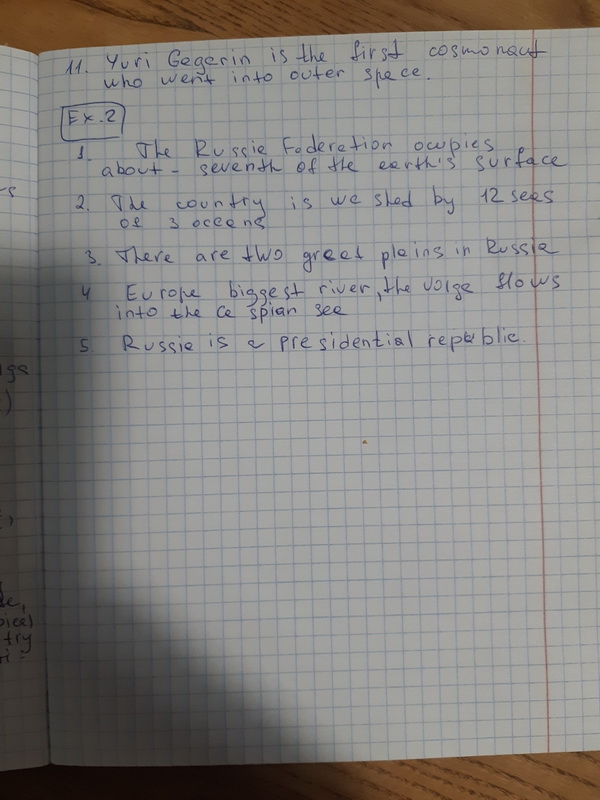 11. Yuri Gagarin is the first cosmonaut
who went into outer space.
Ex. 2
1. The Russia Federation ocupies
about - seventh of the earth's surface
2. The country is wa shed by 12 seas
of 3 oceans
3. There are two great plains in Russia
4 Europe biggest river, the volga flows
into the Ca spian sea
5. Russia is a presidential republic.